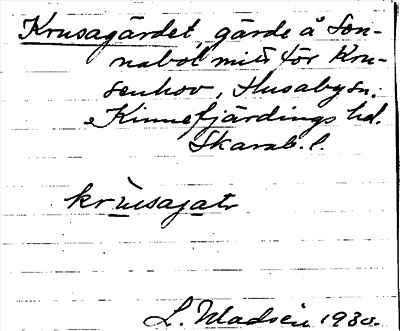 Krusagärdet, gärde å Son-
nabol mitt för Kru-
senhov, Husaby sn.
Kinnefjärdings hd.
Skarab. l.
krusagatr
1930.